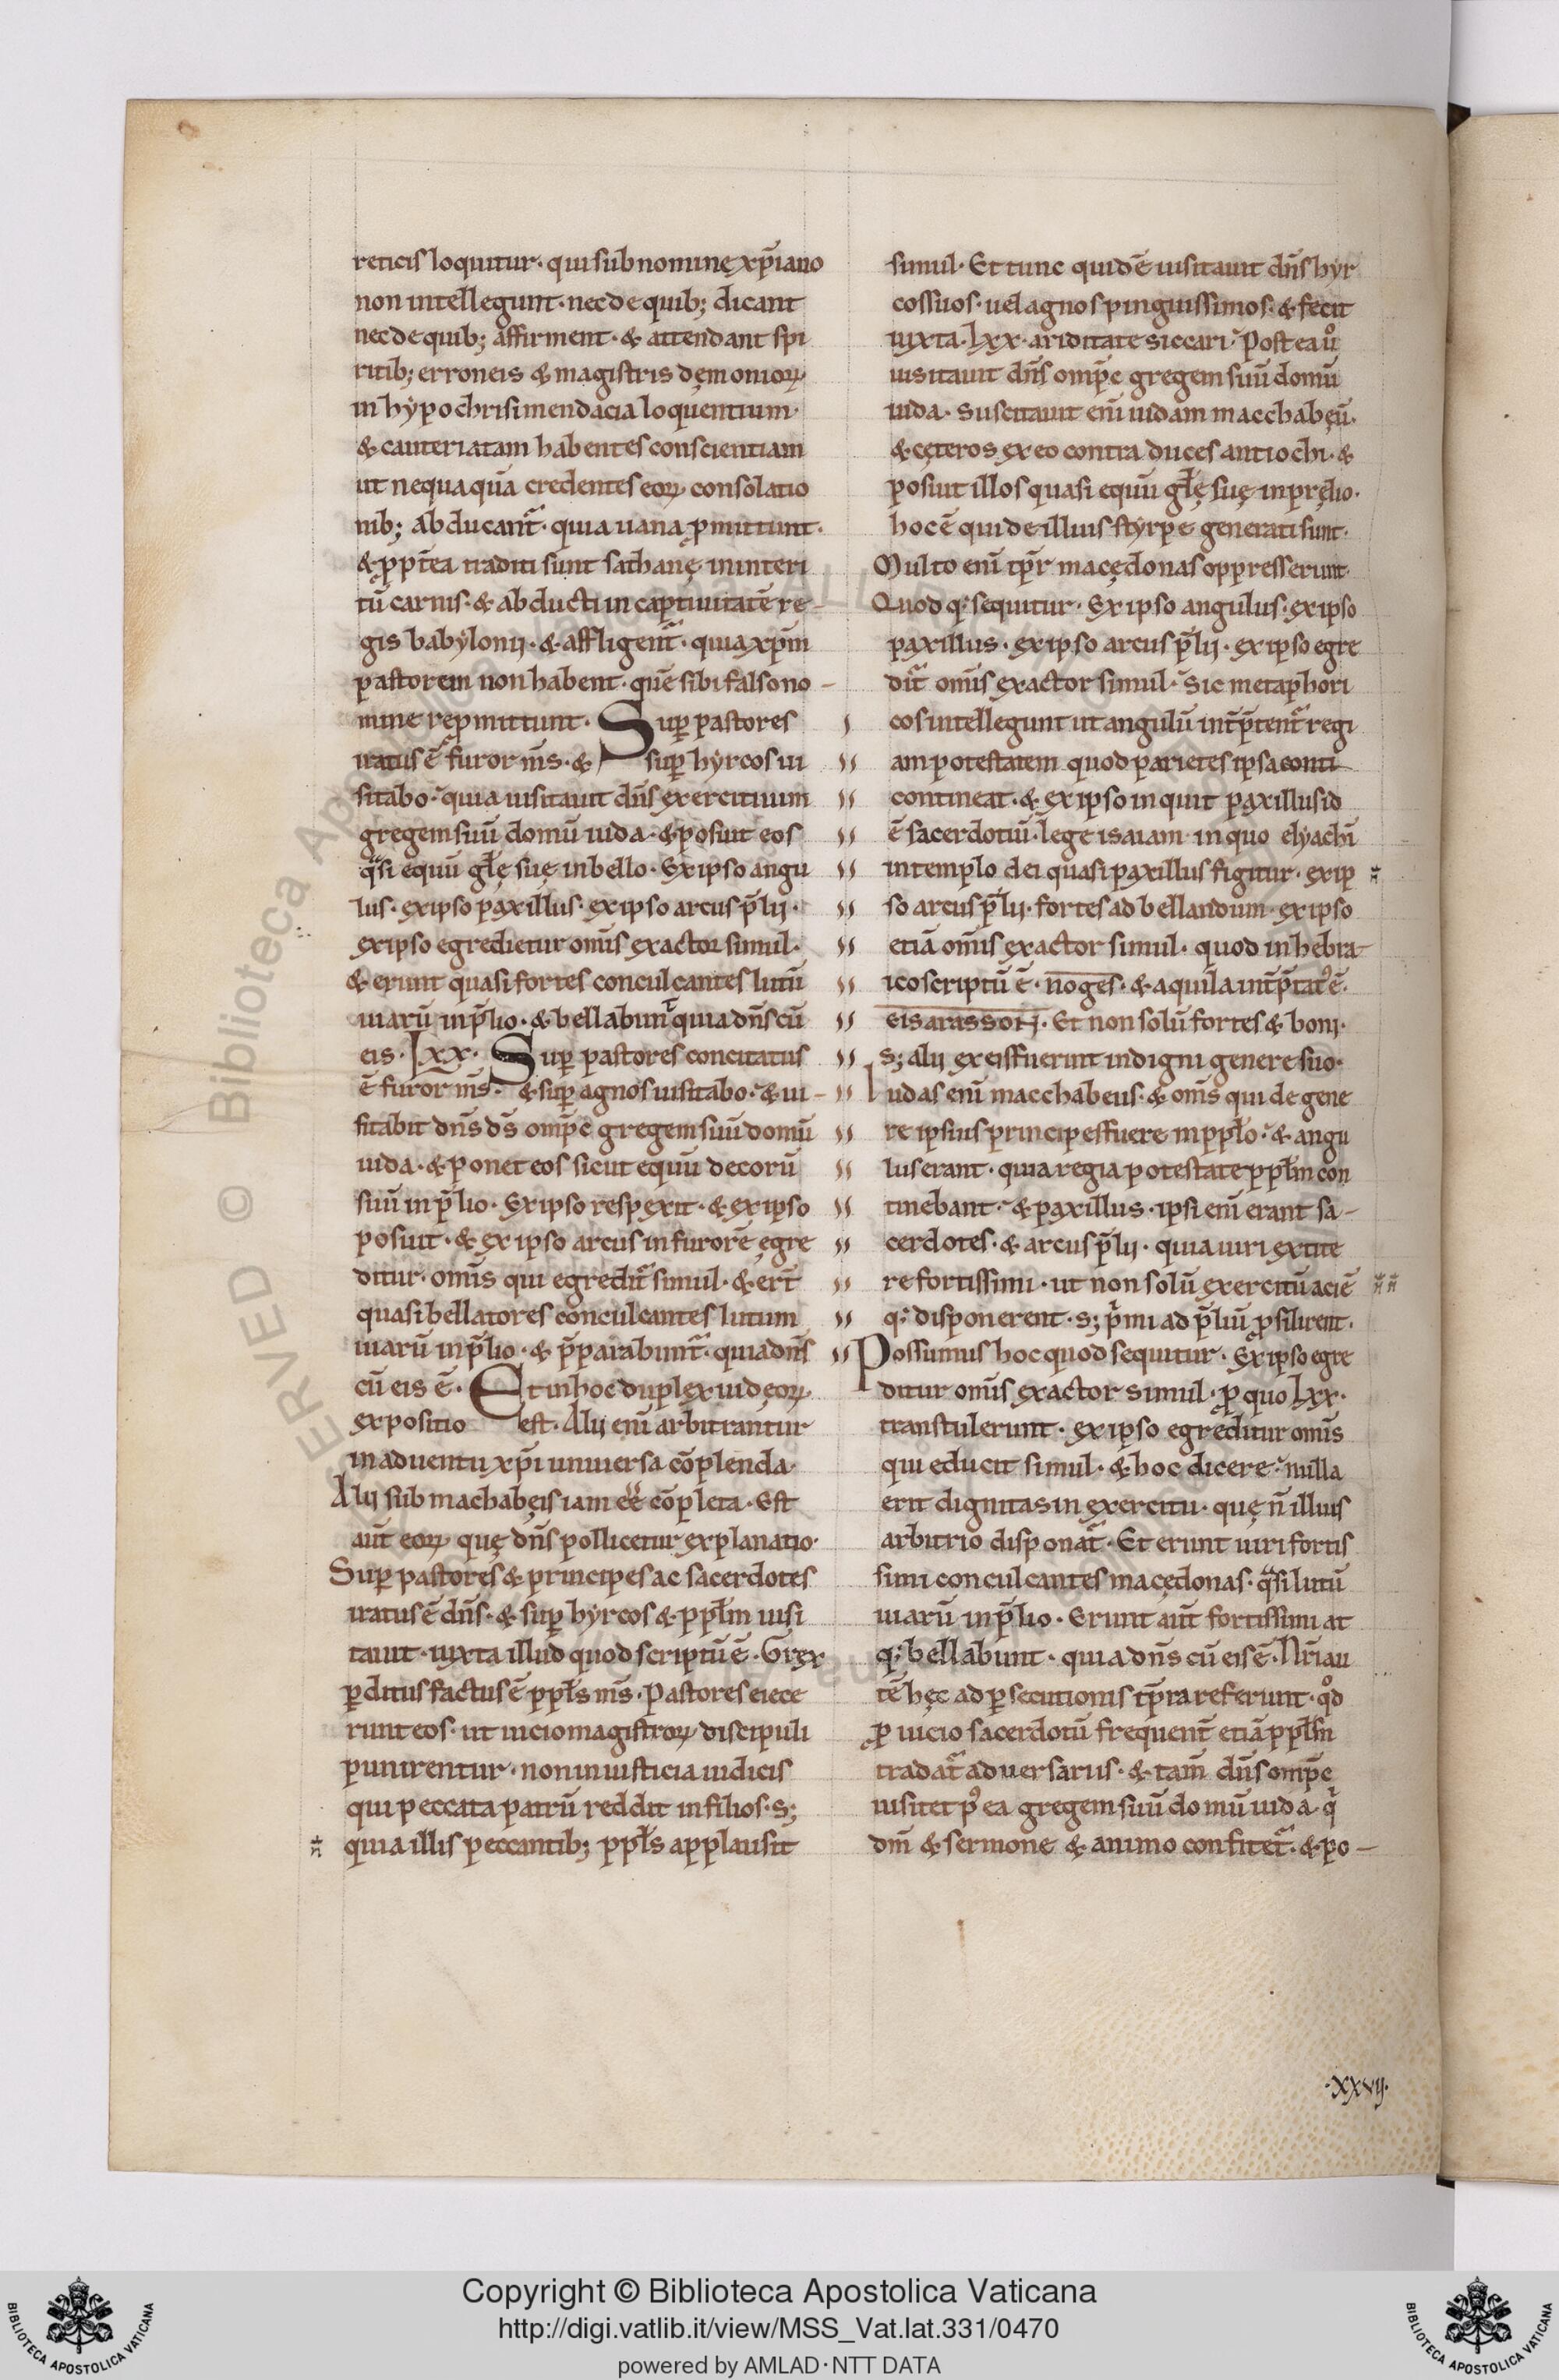 reticis loquitur· qui sub nomine xp̄iano
non intellegunt· nec de quib; dicant
nec de quib; affirment· & attendant spi
ritib; erroneis & magistris dęmonioꝝ·
in hypochrisi mendacia loquentium·
& cauteriatam habentes conscientiam
ut nequaquā credentes eoꝝ consolatio
nib; abducant᷑· quia uana ꝓmittunt·
& ꝓpt̄ea traditi sunt sathanę in interi
tū carnis· & abducti in captiuitatē re-
gis babylonij· & affligent᷑· quia xp̄m
pastorem non habent· quē sibi falso no-
mine reꝓmittunt· Suꝑ pastores
iratus ē furor m̄s· & suꝑ hyrcos ui
sitabo· quia uisitauit dn̄s exercituum
gregem suū domū iuda· & posuit eos
q̄si equū głę suę in bello· Ex ipso angu
lus· ex ipso paxillus· ex ipso arcus p̄lij·
ex ipso egredietur om̄is exactor simul·
& erunt quasi fortes conculcantes lutū
uiarū in p̄lio· & bellabunt quia dn̄s cū
eis· LXX· Suꝑ pastores concitatus
ē furor m̄s· & suꝑ agnos uisitabo· & ui-
sitabit dn̄s ds̄ omp̄c gregem suū domū
iuda· & ponet eos sicut equū decorū
suū in p̄lio· Ex ipso respexit· & ex ipso
posuit· & ex ipso arcus in furorē egre
ditur· om̄is qui egredit᷑ simul· & ert̄
quasi bellatores conculcantes lutum
uiarū in p̄lio· & p̄parabunt᷑· quia dn̄s
cū eis ē· Et in hoc duplex iudęoꝝ
expositio est· Alij eni᷑ arbitrantur
in aduentu xp̄i uniuersa cōplenda·
Alij sub machabęis iam eē cōpleta· Est
aut̄ eoꝝ quę dn̄s pollicetur explanatio·
Suꝑ pastores & principes ac sacerdotes
iratus ē dn̄s· & suꝑ hyrcos & ppłm uisi
tauit· iuxta illud quod scriptū ē· Grex
ꝑditus factus ē ppłs m̄s· Pastores eiece
runt eos· ut uicio magistroꝝ discipuli
punirentur· non iniusticia iudicis
qui peccata patrū reddit in filios· s;
quia illis peccantib; ppłs applausit
simul· Et tunc quidē uisitauit dn̄s hyr
cos suos· uel agnos pinguissimos· & fecit
iuxta· LXX· ariditate siccari· Postea ů
uisitauit dn̄s omp̄c gregem suū domū
iuda· Suscitauit eni᷑ iudam macchabęū·
& cęteros ex eo contra duces antiochi· &
posuit illos quasi equū głę suę in pręlio·
hoc ē qui de illius styrpe generati sunt·
Multo eni᷑ tp̄r macędonas oppresserunt·
Quod q; sequitur· Ex ipso angulus· ex ipso
paxillus· ex ipso arcus p̄lij· ex ipso egre
dit᷑ om̄is exactor simul· Sic metaphori
cos intellegunt ut angulū int̄p̄tent᷑ regi
am potestatem quod parietes ipsa conti
contineat· & ex ipso inquit paxillus id
ē sacerdotiū· lege isaiam· in quo elyachī
in templo dei quasi paxillus figitur· ex ip
so arcus p̄lij· fortes ad bellandum· ex ipso
etiā om̄is exactor simul· quod in hebra
ico scriptū ē· noges· & aquila int̄p̄tat᷑ ē·
eisarasson· Et non solū fortes & boni·
s; alij ex eis fuerunt indigni genere suo·
Iudas eni᷑ macchabeus· & om̄s qui de gene
re ipsius principes fuere in ppło· & angu
lus erant· quia regia potestate ppłm con
tinebant· & paxillus· ipsi eni᷑ erant sa-
cerdotes· & arcus p̄lij· quia uiri extite
re fortissimi· ut non solū exercitū aciē
q; disponerent· s; p̄mi ad p̄liū ꝓsilirent·
Possumus hoc quod sequitur· Ex ipso egre
ditur omnis exactor simul· ꝓ quo LXX·
transtulerunt· ex ipso egreditur om̄is
qui educit simul· & hoc dicere· nulla
erit dignitas in exercitu· quę n̄ illius
arbitrio disponat᷑· Et erunt uiri fortis
simi conculcantes macędonas· q̄si lutū
uiarū in p̄lio· Erunt aut̄ fortissimi at
q; bellabunt· quia dn̄s cū eis ē· Nr̄i au
tē hęc ad ꝑsecutionis tp̄ra referunt· qd̊
ꝓ uicio sacerdotū frequent̄ etiā ppłm
tradat᷑ aduersariis· & tam̄ dn̄s omp̄c
uisitet p᷒ ea gregem suū domū iuda· q᷑
dm̄ & sermone & animo confitet᷑· & po-
·xxvij·
Copyright © Biblioteca Apostolica Vaticana
http://digi.vatlib.it/view/MSS_Vat.lat.331/0470
powered by AMLAD·NTT DATA
BIBLIOTECA APOSTOLICA VATICANA
BIBLIOTECA APOSTOLICA VATICANA